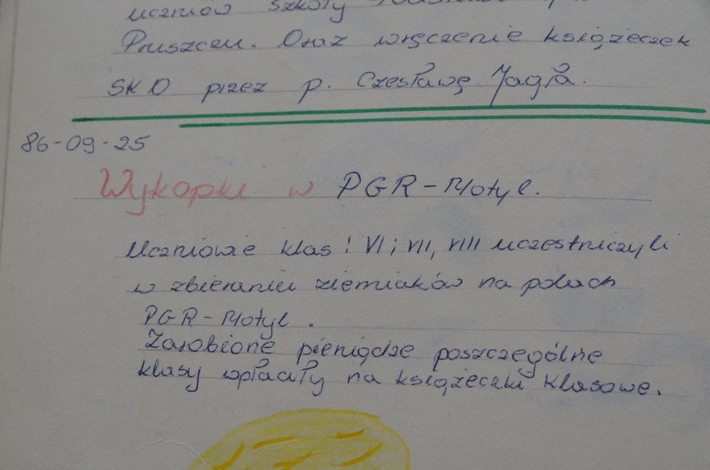 uczniów szkoły
Pruszczu. Oraz wręczenie książeczek
SKO przez p. Czesławę Jagła.
86-09-25
Wykopki w PGR-Motyl.
Uczniowie klas : VI i VII, VIII uczestniczyli
w zbieraniu ziemiaków na polach
PGR-Motyl.
Zarobione pieniądze poszczególne
klasy wpłaciły na książeczki klasowe.